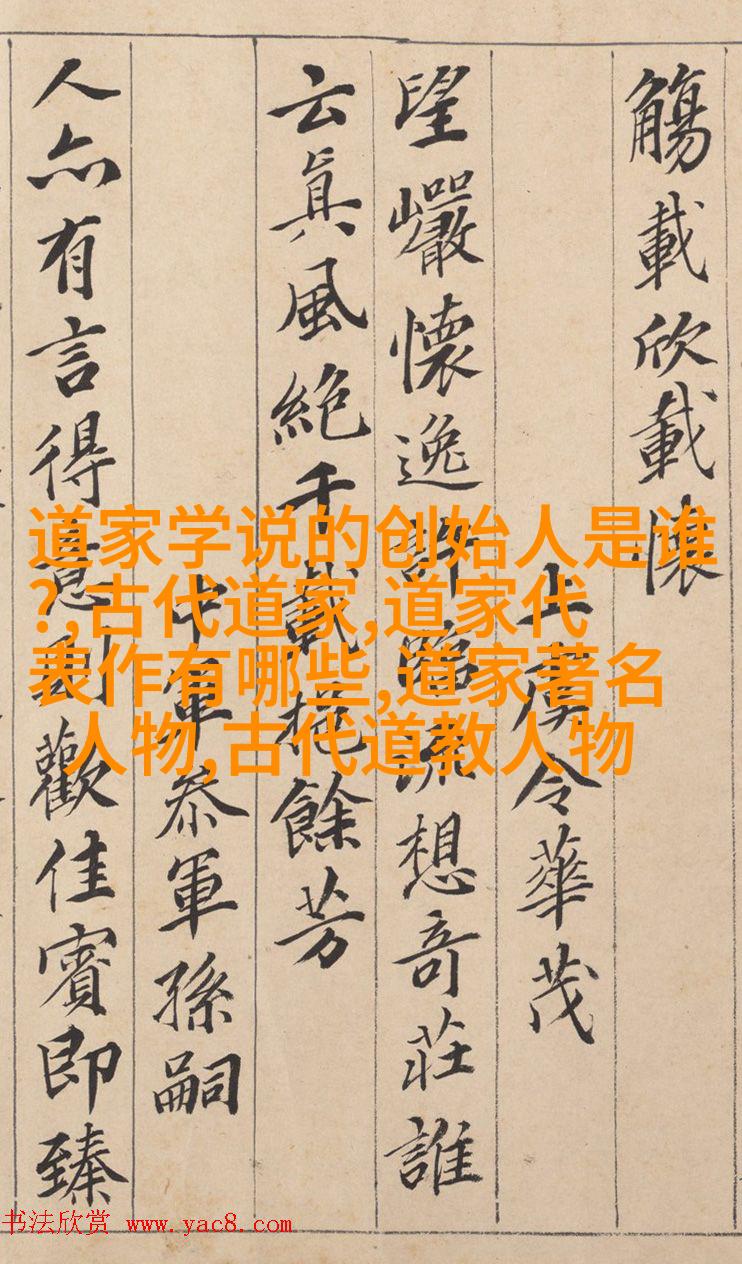 觴載欣載懷
上虞令華茂
望巖懷逸許臨流想奇莊誰
云眞風絕千載挹餘芳
中軍參軍孫嗣
人亦有言得意則歡佳賓即臻
道家学说的创始人是谁
?,古代道家,道家代
表作有哪些,道家著名
人物,古代道教人物
书法欣赏 www.yac8.com